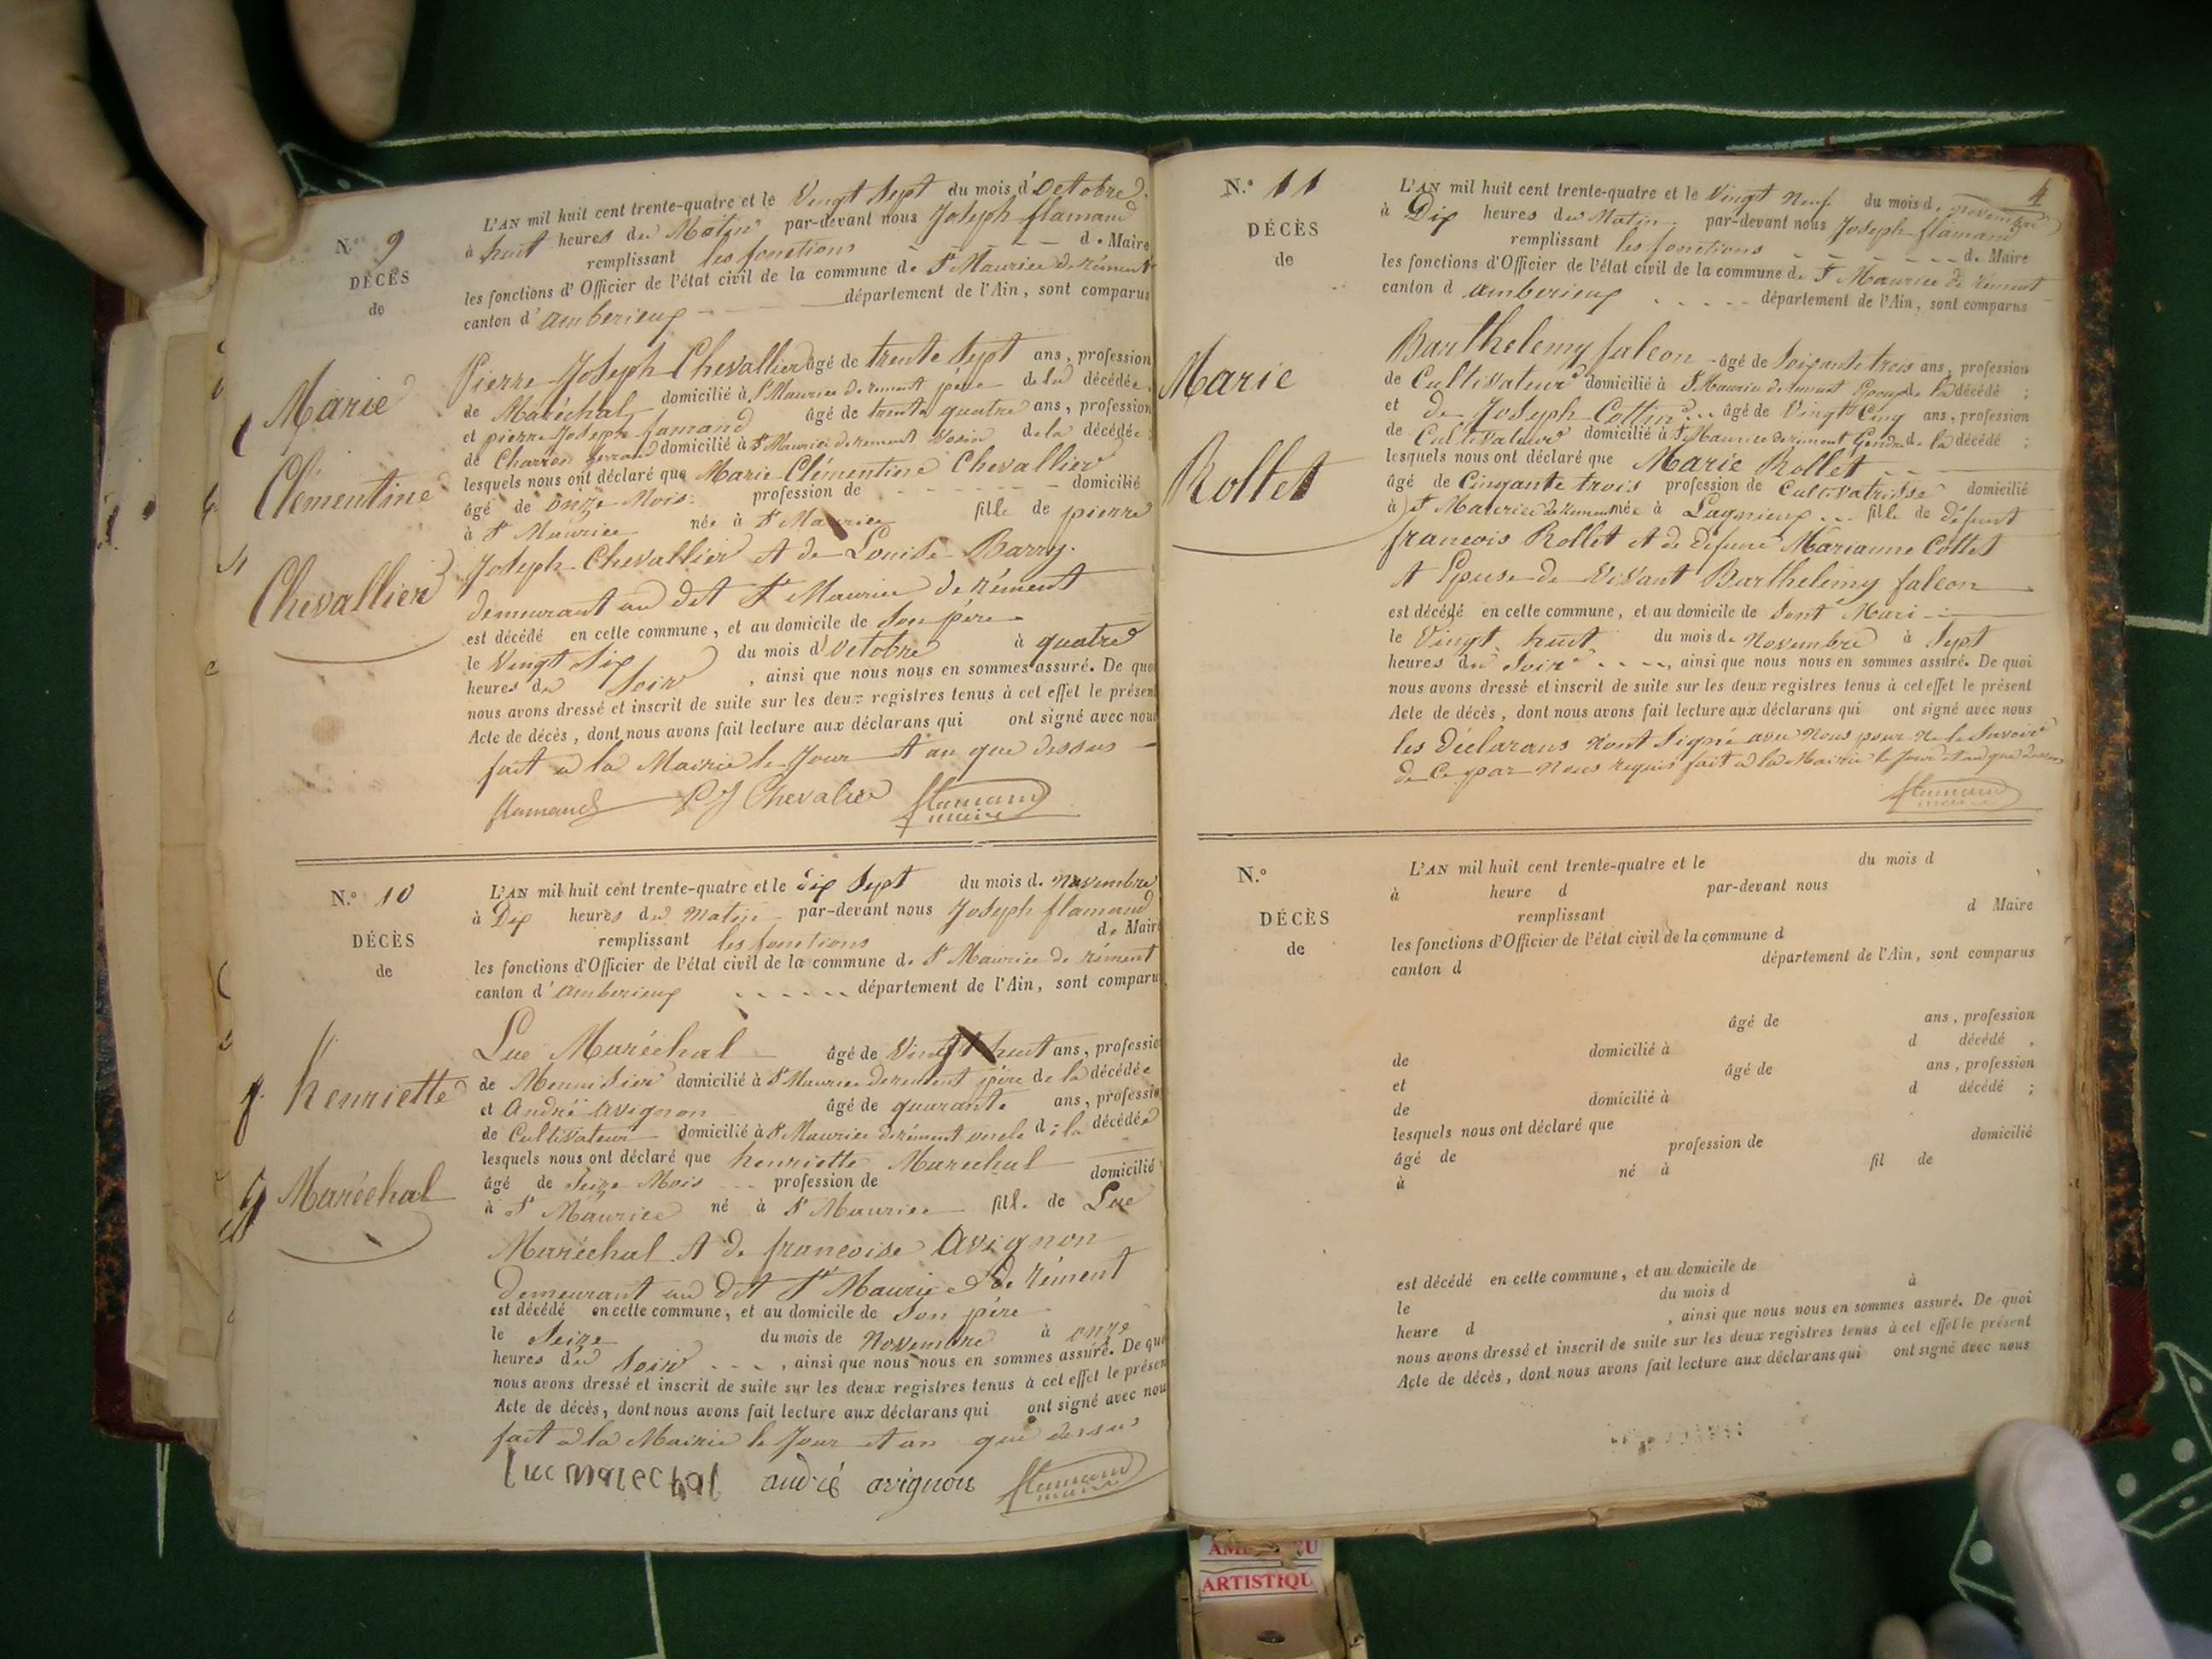 N.° 9
DÉCÈS
de
Marie
Clémentine
Chevallier
L'AN mil huit cent trente-quatre et le Vingt Sept du mois d'Octobre
à huit heures du Matin par-devant nous Joseph flamand
remplissant les fonctions d. Maire
les fonctions d'Officier de l'état civil de la commune de St Maurice de rément
canton d'amberieux département de l'Ain, sont comparus
Pierre Joseph Chevallier âgé de trente Sept ans, profession
de Maréchal domicilié à St Maurice de rement père de la décédée
et pierre Joseph famand âgé de trente quatre ans, profession
de Charron domicilié à St Maurice de rement Voisin de la décédée
lesquels nous ont déclaré que Marie Clémentine Chevallier
âgé de onze Mois profession de domicilié
à St Maurice née à St Maurice fille de pierre
Joseph Chevallier et de Louise Barry.
demeurant au dit St Maurice de rément
est décédé en cette commune, et au domicile de Son père
le Vingt Six du mois d'Octobre à quatre
heures du Soir, ainsi que nous nous en sommes assuré. De quo
nous avons dressé et inscrit de suite sur les deux registres tenus à cet effet le présen
Acte de décès, dont nous avons fait lecture aux déclarans qui ont signé avec nou
fait à la Mairie le Jour et an que dessus
flamand P J Chevalier flamand
maire
N.° 10
DÉCÈS
de
henriette
Maréchal
L'AN mil huit cent trente-quatre et le dix Sept du mois d. Novembre
à Dix heures du Matin par-devant nous Joseph flamand
remplissant les fonctions de Mair
les fonctions d'Officier de l'état civil de la commune d. St Maurice de rément
canton d'amberieux département de l'Ain, sont comparu
Luc Maréchal âgé de Vingt huit ans, professio
de Menuisier domicilié à St Maurice de rement père de la décédée
et André avignon âgé de quarante ans, professio
de Cultivateur domicilié à St Maurice de rément oncle de la décédée
lesquels nous ont déclaré que henriette Marechal
âgé de Seize Mois profession de domicilié
à St Maurice né à St Maurice fill. de Luc
Maréchal et de francoise Avignon
Demeurant au dit St Maurice de rément
est décédé en cette commune, et au domicile de Son père
le Seize du mois de Novembre à onze
heures du Soir, ainsi que nous nous en sommes assuré. De quo
nous avons dressé et inscrit de suite sur les deux registres tenus à cet effet le présen
Acte de décès, dont nous avons fait lecture aux déclarans qui ont signé avec nou
fait à la Mairie le Jour et an que dessus
luc marechal andré avignon flamand
maire
4
N.° 11
DÉCÈS
de
Marie
Rollet
L'AN mil huit cent trente-quatre et le Vingt Neuf du mois d. novembre
à Dix heures du Matin par-devant nous Joseph flamand
remplissant les fonctions d. Maire
les fonctions d'Officier de l'état civil de la commune d. St Maurice de rément
canton d amberieux département de l'Ain, sont comparus
Barthelemy falcon âgé de Soixante trois ans, profession
de Cultivateur domicilié à St Maurice de rement Epoux de la décédé ;
et de Joseph Cottin âgé de Vingt Cinq ans, profession
de Cultivateur domicilié à St Maurice de rement Gendre de la décédé ;
lesquels nous ont déclaré que Marie Rollet
âgé de Cinquante trois profession de Cultivatrisse domicilié
à St Maurice de rement née à Lagnieux fille de défunt
francois Rollet et de défune Marianne Collet
et Epuse de Vivant Barthelemy falcon
est décédé en cette commune, et au domicile de Sont Mari
le Vingt huit du mois de Novembre à Sept
heures du Soir, ainsi que nous nous en sommes assuré. De quoi
nous avons dressé et inscrit de suite sur les deux registres tenus à cet effet le présent
Acte de décès, dont nous avons fait lecture aux déclarans qui ont signé avec nous
les Déclarans n'ont Signé avec Nous pour ne le Savoir
de ce par Nous requis fait à la Mairie le Jour et an que dessus
flamand
maire
N.°
DÉCÈS
de
L'AN mil huit cent trente-quatre et le du mois d
à heure d par-devant nous
remplissant d Maire
les fonctions d'Officier de l'état civil de la commune d
canton d département de l'Ain, sont comparus
âgé de ans, profession
de domicilié à d décédé ,
et âgé de ans, profession
de domicilié à d décédé ;
lesquels nous ont déclaré que
âgé de profession de domicilié
à né à fil de
est décédé en cette commune, et au domicile de
le du mois d à
heure d , ainsi que nous nous en sommes assuré. De quoi
nous avons dressé et inscrit de suite sur les deux registres tenus à cet effet le présent
Acte de décès, dont nous avons fait lecture aux déclarans qui ont signé avec nous
ARTISTIQU